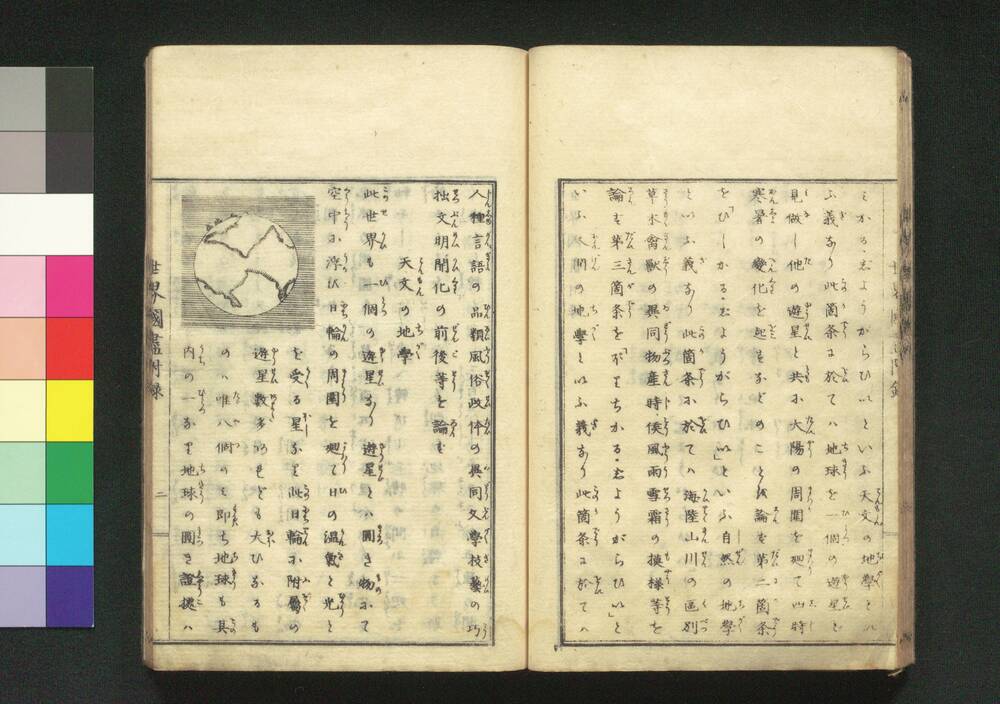 ミかる・志ようがらひいといふ天文の地學とハ
ふ義あり此箇条に於てハ地球を一個の遊星と
見做し他の遊星と共に大陽の周圍を廻て四時
寒暑の變化を起すなどのことを論ず第二箇条
をひしかる・志ようがらひいといふ自然の地學
といふ義あり此箇条に於てハ海陸山川の區別
草木禽獸の異同物産時候風雨雪霜の摸様等を
論ず第三箇条をぽりちかる・志ようがらひいと
いふ人間の地學といふ義あり此箇条に於てハ
人種言語の品類風俗政体の異同文學技藝の巧
拙文明開化の前後等を論ず
天文の地學
此世界も一個の遊星なり遊星とハ圓き物にて
空中に浮び日輪の周圍を廻て日の温氣と光と
を受る星なり此日輪に附屬の
遊星數多あれども大ひなるも
のハ唯八個のミ即ち地球も其
内の一なり地球の圓き證拠ハ
世界國盡附録
二